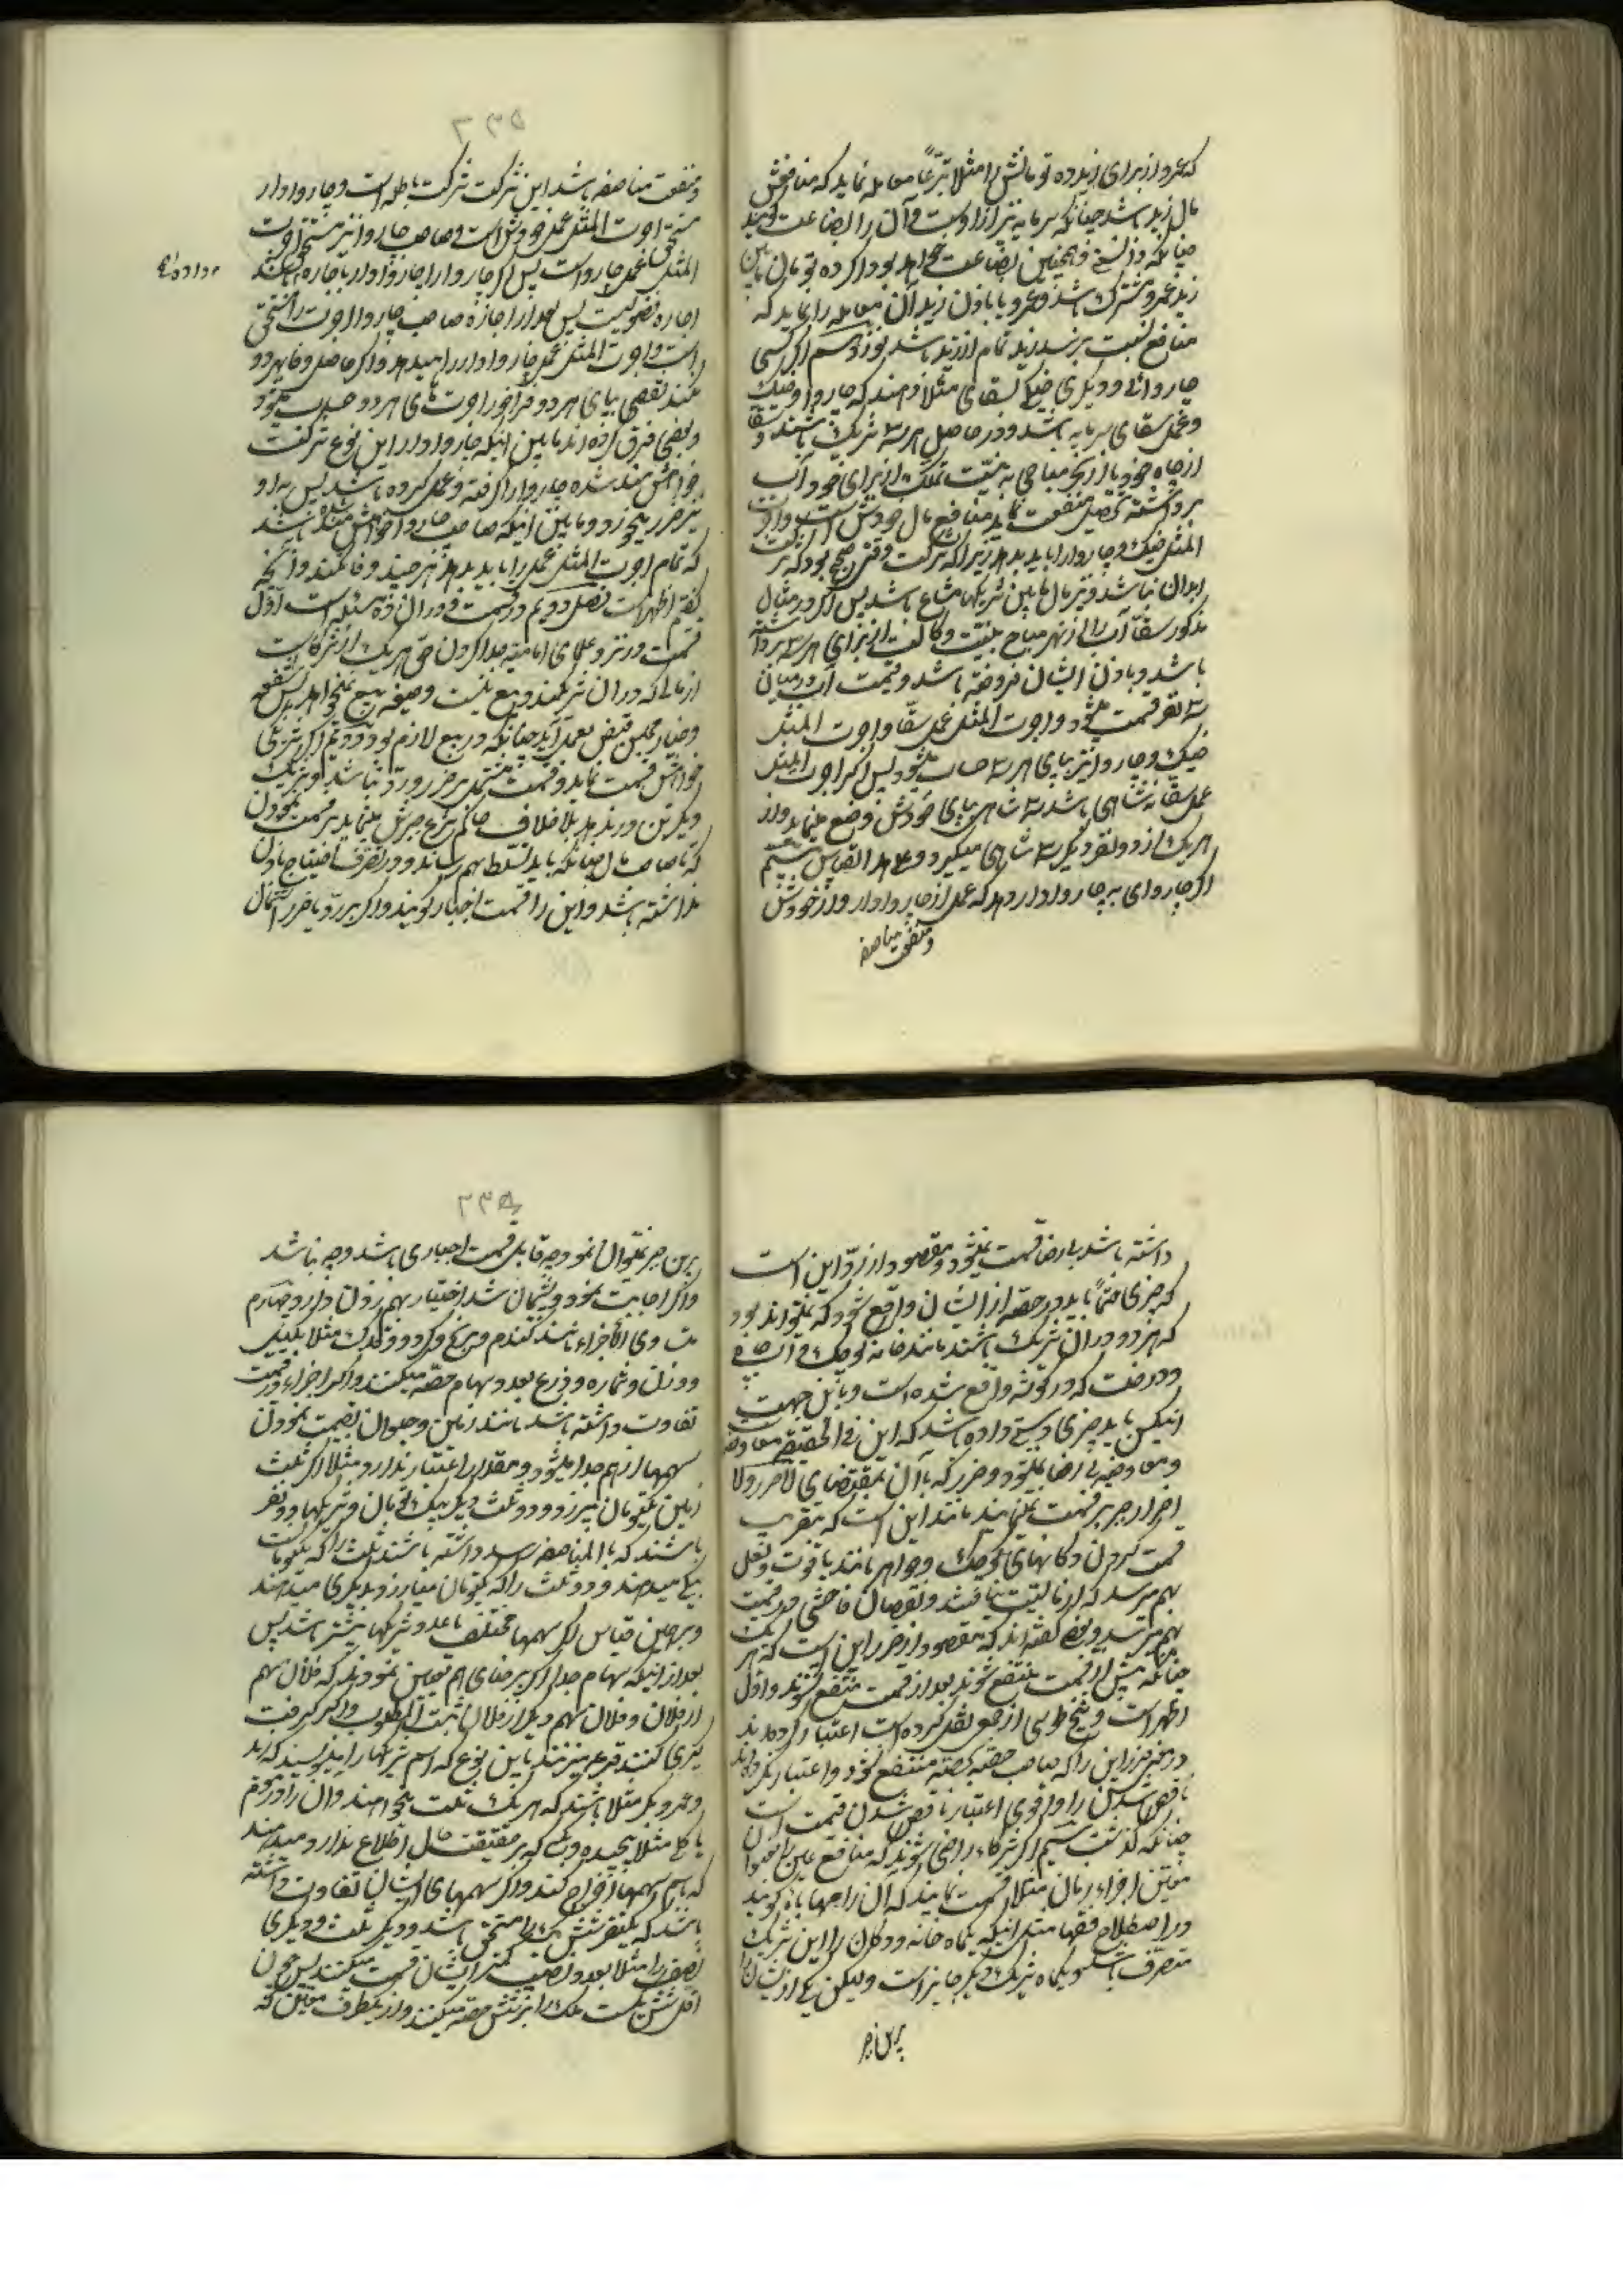 که عمرو از برای زید ده تومانش را مثلا تبرّعاً معامله نماید که منافعش
مال زید باشد چنانکه سرمایه نیز از اوست و آن را بضاعت گویند
چنانکه دانستی و همچنین بضاعت خواهد بود اگر ده تومان مابین
زید و عمرو مشترک باشد و عمرو با باذن زید آن معامله را نماید که
منافع نسبت برسد زید تمام از زید باشد سیم اگر کسی
چاروائی و دیگری خیکی بسقای مثلا دهند که چاروا و خیک
و عمل سقا سرمایه باشد و در حاصل هر سه شریک باشند و سقا
از چاه خود یا از نهر مباحی به نیّت تملّک از برای خود آب
برداشته تحصیل منفعت نماید منافع مال خودش است و اجرت
المثل خیک و چاروا را باید بدهد زیرا که شرکت وقتی صحیح بود که شرکت
ابدان نباشد و نیز مال مابین شریکها مشاع باشد پس اگر در مثال
مذکور سقا آب را از نهر مباح به نیّت وکالت از برای هر سه برداشته
باشد و باذن ایشان فروخته باشد و قیمت آب در میان
سه نفر قسمت میشود و اجرت المثل عمل سقا و اجرت المثل
خیک و چاروا نیز بپای هر سه حساب میشود پس اگر اجرت المثل
عمل سقا نه شاهی باشد سه شاهی بپای خودش وضع مینماید و از
هر یک از دو نفر دیگر سه شاهی میگیرد و علی هذا القیاس
اگر چاروای به چاروادار دهد که عمل از چاروادار و از خودش
و منفعت مناصفه
۲۳۵
و منفعت مناصفه باشد این شرکت شرکت باطله است و چاروادار
مستحق اجرت المثل عمل خودش است و صاحب چاروا نیز مستحق اجرت
المثل عمل چاروا است پس اگر چاروا را چاروادار باجاره داده باشد
اجاره فضولیست پس بعد از اجازه صاحب چاروا اجرت را مستحق
است و اجرت المثل عمل چاروادار را میدهد و اگر حاصل وفا بهر دو
نکند نقص بپای هر دو فراخور اجرت‌های هر دو حساب میشود
و بعضی فرق کرده‌اند مابین اینکه چاروادار این نوع شرکت
خواهشمند شده چاروا را گرفته و عمل کرده باشد پس بر او
نیز ضرر میخورد و مابین اینکه صاحب چاروا خواهشمند شده باشد
که تمام اجرت المثل عمل را باید بدهد هر چند وفا نکند و آنچه
گفتم اظهر است فصل دویم در قسمت و در آن ده مسئله است اوّل
قسمت در نزد علمای امامیه جدا کردن حق هر یک از شرکاست
از مالی که در آن شریکند و بیع نیست و صیغه بیع نمیخواهد پس شفعه
و خیار مجلس و قبض بعمل آید چنانکه در بیع لازم بود دویم اگر شریکی
خواهش قسمت نماید و قسمت مشتمل بر ضرر و ردّ نباشد و شریک
دیگر تن در ندهد بلا خلاف حاکم شرع جبرش مینماید بر قسمت نمودن
که تا صاحب مال چنانکه باید تسلّط بهم رساند و در تصرّف احتیاج باذن
نداشته باشد و این را قسمت اجبار گویند و اگر بر ردّ یا ضرر اشتمال
داشته باشد بی رضا قسمت نمیشود و مقصود از ردّ این است
که چیزی حتماً باید در حصّه از ایشان واقع شود که نمیتواند بود
که هر دو در آن شریک باشند مانند خانه کوچک و آسیاب
و درخت که در گوشه واقع شده است و باین جهت
این یکی باید چیزی دستی داده باشد که این فی الحقیقه معاوضه است
و معاوضه بی رضا نمیشود و ضرر که با آن بمقتضای لا ضرر و لا
اضرار جبر بر قسمت نمینمایند مانند این است که بتقریب
قسمت کردن دکانهای کوچک و جواهر مانند یاقوت و لعل
بهم رسد که از مالیت بیافتند و نقصان فاحشی در قیمت
بهم رسد و بعضی گفته‌اند که مقصود از ضرر این است که هر یک
چنانکه پیش از قسمت منتفع شوند بعد از قسمت منتفع نشوند و اوّل
اظهر است و شیخ طوسی از جمعی نقل کرده است اعتبار کرده‌اند
در ضرر این را که صاحب حصّه بحصّه منتفع نشود و اعتبار نکرده‌اند
ناقص شدن را و اقوی اعتبار ناقص شدن قیمت است
چنانکه گذشت سیم اگر شرکاء راضی شوند که منافع عین را بعنوان
معین اجزاء زمان مثلا قسمت نمایند که آن را مهایاة گویند
در اصطلاح فقها مثل اینکه یکماه خانه و دکان را این شریک
متصرّف باشد و یکماه شریک دیگر جایز است و لیکن یکی از ایشان را
بر این جبر
۲۳۵
بر این جبر نمیتوان نمود چه قابل قسمت اجباری باشد و چه نباشد
و اگر اجابت نمود و پشیمان شد اختیار بهم زدن دارد چهارم
متساوی الاجزاء مانند گندم و برنج و کرد و قدک مثلا بکیل
و وزن و شماره و ذرع بعدد سهام حصّه میکنند و اگر اجزاء در قیمت
تفاوت داشته باشد مانند زمین و حیوان بقیمت نمودن
سهمها از هم جدا میشود و مقدار را اعتبار ندارد مثلا اگر ثلث
زمین یکتومان بیرزد و دو ثلث دیگر بیکتومان و شریکها دو نفر
باشند که بالمناصفه رسد داشته باشند ثلث را که یکتومانست
بیکی میدهند و دو ثلث را که یکتومان میارزد بدیگری میدهند
و بر همین قیاس اگر سهمها مختلف یا عدد شریکها بیشتر باشد پس
بعد از اینکه سهام جدا اگر برضای هم تعین نمودند که فلان سهم
از فلان و فلان سهم دیگر از فلان ثبت المطلوب و اگر گرفت
گیری کنند قرعه میزنند باین نوع که اسم شریکها را مینویسند که زید
و عمرو و بکر مثلا باشند که هر یک ثلث میخواهند و آن را در موم
یا گل مثلا پیچیده و بکسی که بر حقیقت حال اطّلاع ندارد میدهند
که باسم سهمها اخراج کند و اگر سهمهای ایشان تفاوت داشته
باشد که یکنفر شش یک را مستحق باشد و دیگر ثلث و دیگری
نصف را مثلا بعدد نصیب کمتر ایشان قسمت میکنند پس چون
اقل شش یکست ملک را بر شش حصّه میکنند و از یکطرف معین که